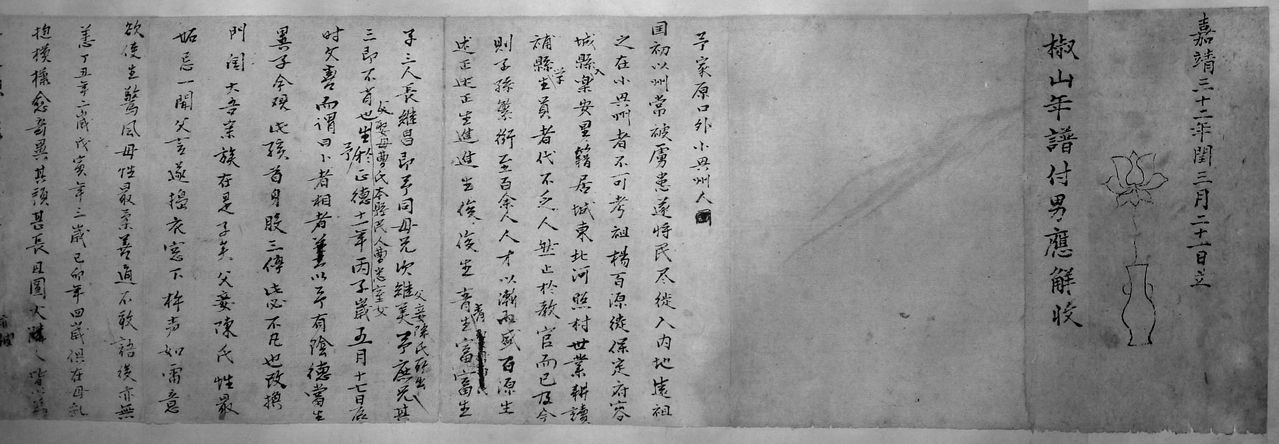 嘉靖三十二年閏三月二十一日立
椒山年譜付男應觧收
予家原口外小興州人
国初以州常被虜患遂將民尽徙入内地遠祖
之在小興州者不可考楊百源徙保定府容
城縣樂安里籍居城東北河照村世業耕讀
補縣学生員者代不乏人然止於教官而已及今
則子孫繁衍至百余人人才以漸而盛百源生
述正述正生進進生俊俊生青青生富富生
子三人長継昌即予同母兄次継美父妾陳氏所出予庶兄其
三即不肖也父娶母曹氏本縣民人曹忠室女生予於正德十一年丙子歳五月十七日辰
时父喜而謂曰卜者相者兼以予有陰德當生
異子今观此孩首身股三停此必不凡也改換
門閭大吾宗族在是子矣父妾陳氏性最
妬忌一聞父言遂搗衣窓下杵声如雷意
欲使生驚風母性最柔善通不敢語後亦無
恙丁丑年二歳戊寅年三歳己卯年四歳俱在母乳
抱模樣愈奇異其頭甚長且圓人皆